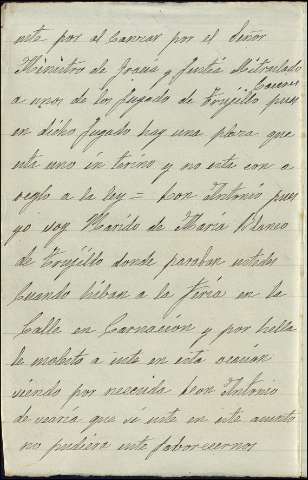 uste por al Canzar por el Señor
Ministro de Gracia y Justia Mitraslado
Caceres
a unos de los Jugado de Trujillo pues
en dicho Jugado hay una plaza que
esta uno in terino y no esta con a
reglo a la ley = Don Antonio pues
yo soy Marido de Maria Blanco
de Trujillo donde paraban ustedes
Cuando hiban a la Feria en la
Calle en Carnacion y por hella
le molesto a uste en esta ocasion
siendo por Don Antonio
de searia que si uste en este asunto
no pudiera uste faborecernos